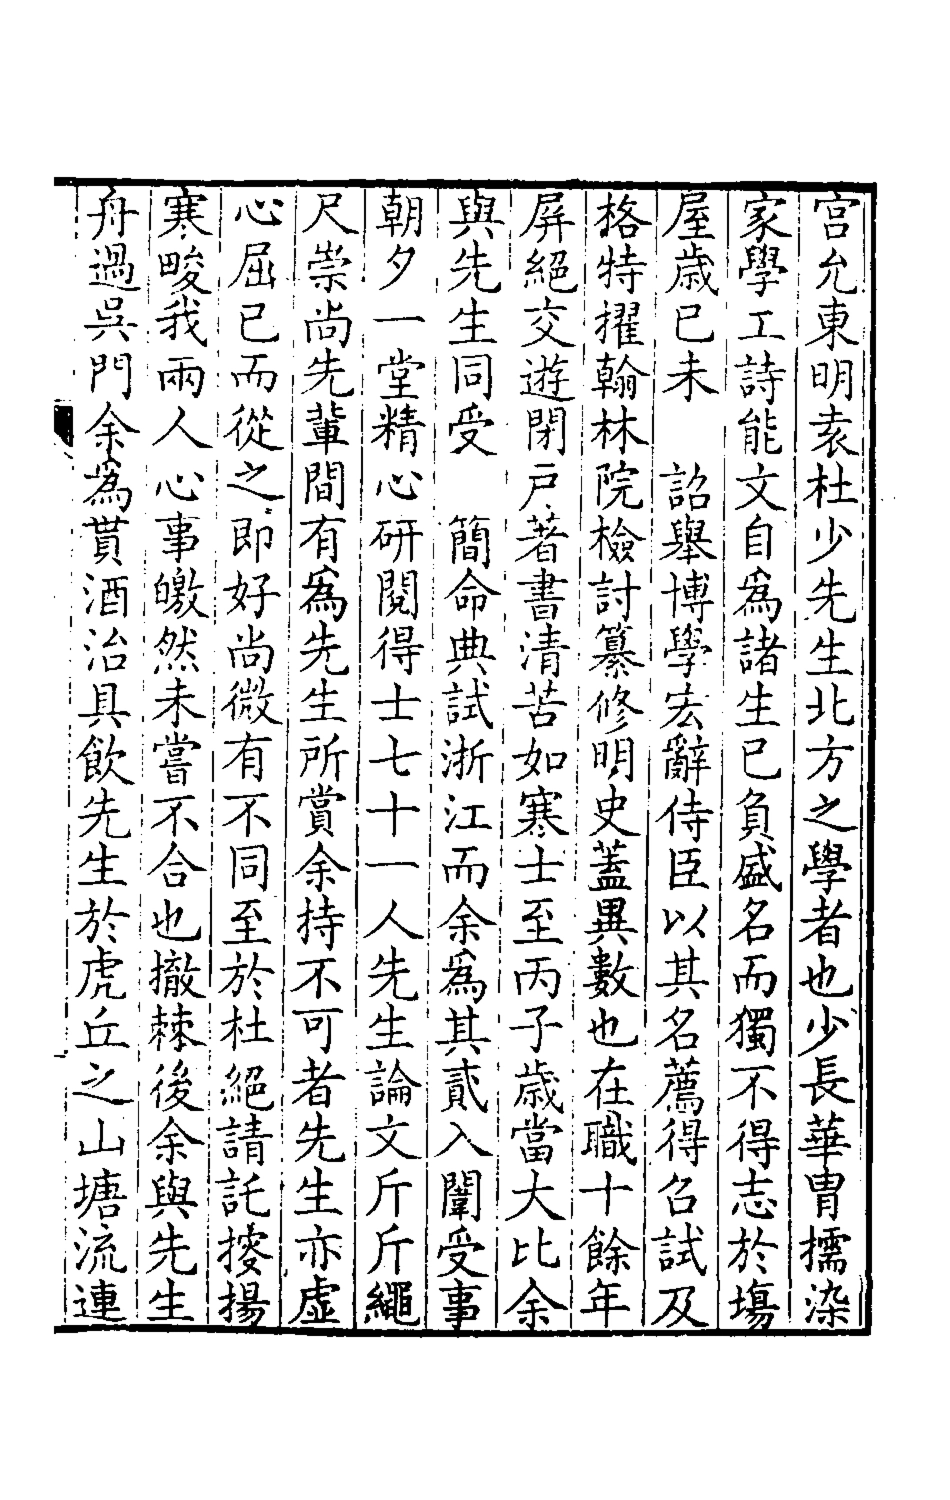 宫允東明袁杜少先生北方之學者也少長華胄擩染
家學工詩能文自爲諸生已負盛名而獨不得志於塲
屋歲已未　詔舉博學宏辭侍臣以其名薦得召試及
格特擢翰林院檢討纂修明史蓋異數也在職十餘年
屏絕交遊閉戸著書清苦如寒士至丙子歲當大比余
與先生同受　簡命典試浙江而余爲其貳入闈受事
朝夕一堂精心研閱得士七十一人先生論文斤斤繩
尺崇尚先輩間有爲先生所賞余持不可者先生亦虚
心屈已而從之即好尚微有不同至於杜絕請託搜揚
寒畯我兩人心事皦然未嘗不合也撤棘後余與先生
舟過吳門余爲貰酒治具飲先生於虎丘之山塘流連